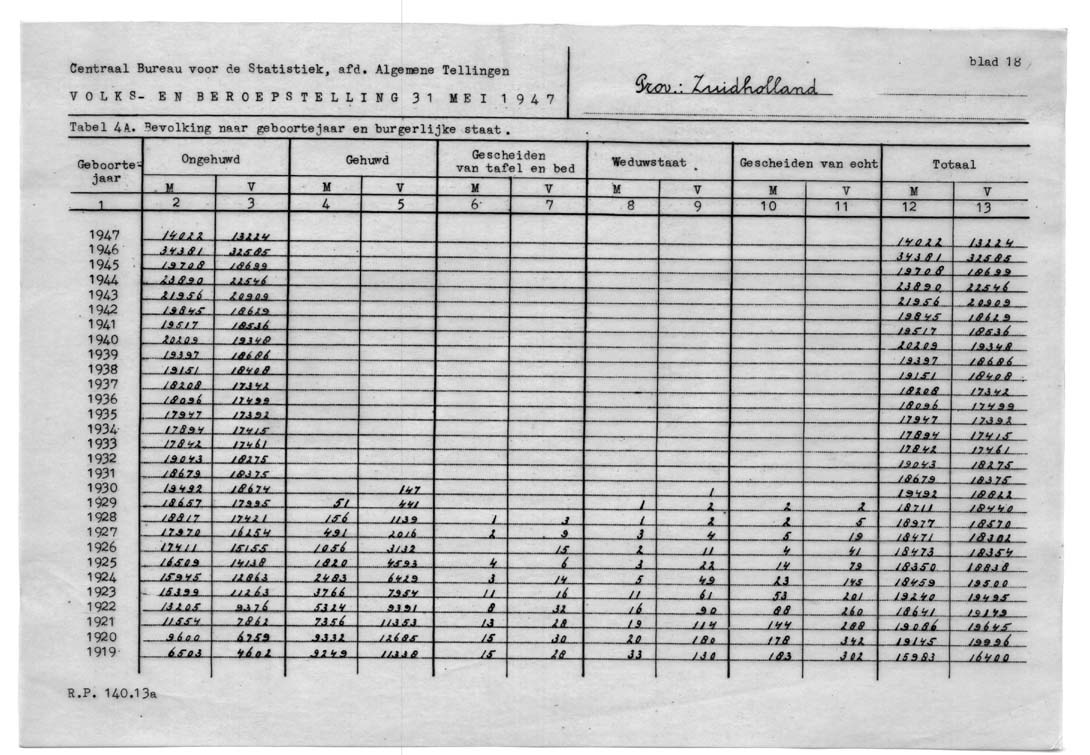 blad 18
Centraal Bureau voor de Statistiek, afd. Algemene Tellingen
VOLKS- EN BEROEPSTELLING 31 MEI 1947
Prov.: Zuidholland
Tabel 4A. Bevolking naar geboortejaar en burgerlijke staat.
Geboorte-jaar Ongehuwd Gehuwd Gescheiden van tafel en bed Weduwstaat Gescheiden van echt Totaal
M V M V M V M V M V M V
1 2 3 4 5 6 7 8 9 10 11 12 13
1947 14022 13224 14022 13224
1946 34381 32585 34381 32585
1945 19708 18699 19708 18699
1944 23890 22546 23890 22546
1943 21956 20909 21956 20909
1942 19845 18629 19845 18629
1941 19517 18536 19517 18536
1940 20209 19348 20209 19348
1939 19397 18686 19397 18686
1938 19151 18408 19151 18408
1937 18208 17342 18208 17342
1936 18096 17499 18096 17499
1935 17947 17392 17947 17392
1934 17894 17415 17894 17415
1933 17842 17461 17842 17461
1932 19043 18275 19043 18275
1931 18679 18375 18679 18375
1930 19492 18674 147 1 19492 18822
1929 18657 17995 51 441 1 2 2 2 18711 18440
1928 18817 17421 156 1139 1 3 1 2 2 5 18977 18570
1927 17970 16254 491 2016 2 9 3 4 5 19 18471 18302
1926 17411 15155 1056 3132 15 2 11 4 41 18473 18354
1925 16509 14138 1820 4593 4 6 3 22 14 79 18350 18838
1924 15945 12863 2483 6429 3 14 5 49 23 145 18459 19500
1923 15399 11263 3766 7954 11 16 11 61 53 201 19240 19495
1922 13205 9376 5324 9391 8 32 16 90 88 260 18641 19149
1921 11554 7862 7356 11353 13 28 19 114 144 288 19086 19645
1920 9600 6759 9332 12685 15 30 20 180 178 342 19145 19996
1919 6503 4602 9249 11338 15 28 33 130 183 302 15983 16400
R.P. 140.13a